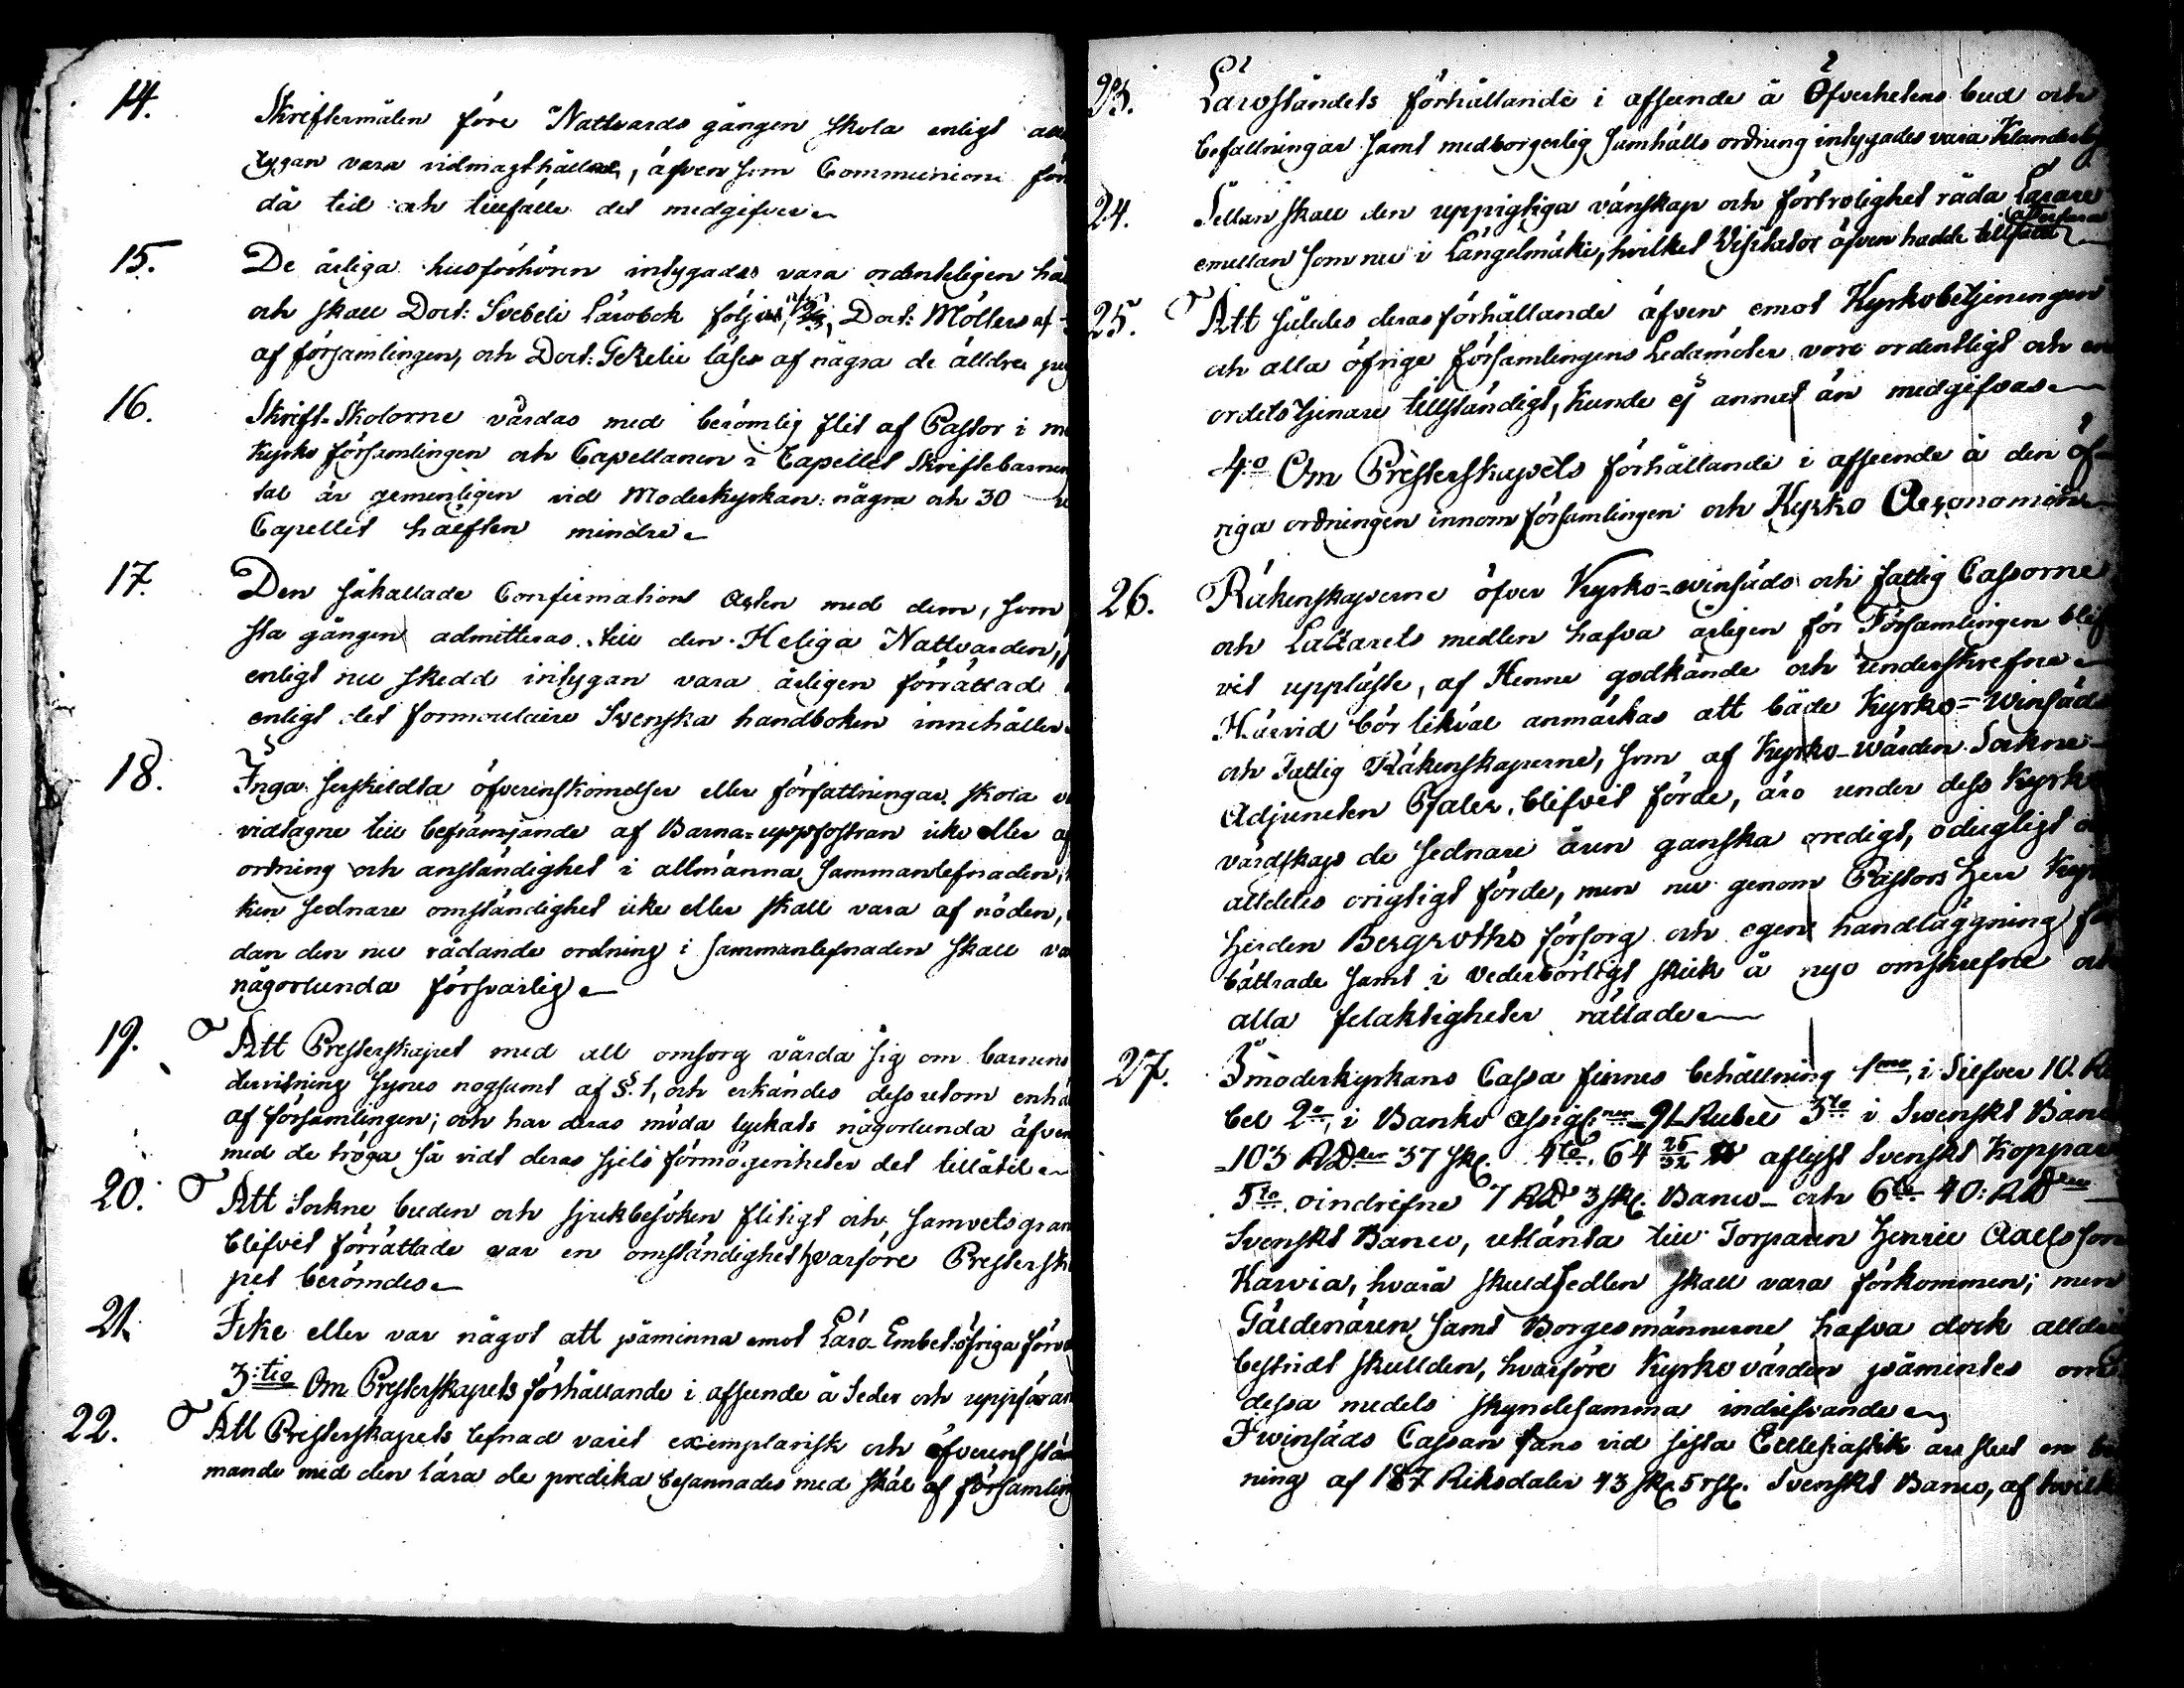 14.
Skriftermålen före Nattvards gången skola enligt
tygan vara vidmagthållne, äfven som Communion för
då tid och tillfälle det medgifver
15.
De årliga husförhören intygades vara ordenteligen hå
och skall Doct: Svebeli Lärobok följas, Doct: Möllers af
af församlingen, och Doct: Gezelii läses af några de älldre
16.
Skrift-Skolorne vårdas med berömlig flit af Pastor i mo
kyrko församlingen och Capellanen i Capellet Skriftebarnen
tal är gemenligen vid Moderkyrkan några och 30
Capellet hälften mindre
17.
Den såkallade Confirmations Acten med dem, som
sta gången admitteras till den Heliga Nattvarden,
enligt nu skedd intygan vara årligen förrättad
enligt det formoulaire Svenska handboken innehåller
18.
Inga serskildta öfverenskomelser eller författningar skola
vidtagne till befrämjande af Barna-uppfostran icke eller
ordning och anständighet i allmänna Sammanlefnaden,
ken sednare omständighet icke eller skall vara af nöden,
dan den nu rådande ordning i sammanlefnaden skall va
någorlunda försvarlig
19.
Att Presterskapet med all omsorg vårda sig om barnens
dervisning synes nogsamt af §. 1, och erkändes dessutom enhä
af församlingen; och har deras möda lyckats någorlunda äfven
med de tröga så vidt deras själs förmögenheter det tillåtit
20.
Att Sockne buden och sjukbesöken flitigt och samvetsgran
blifvit förrättade var en omständighet hvarföre Prestersk
pet berömdes
21.
Icke eller var något att påminna emot Läro-Embet: öfriga förv
3:tio Om Presterskapets förhållande i afseende å Seder och uppföran
22.
Att Presterskapets lefnad varit exemplarisk och öfverensstäm
mande med den lära de predika besannades med skäl af församling
23.
Lärostandets förhållande i afseende å Öfverhetens bud och
befallningar samt medborgerlig samhälls ordning intygades vara Klanderly
24.
Sellan skall den uppigtiga vänskap och förtrolighet råda Lärare
emellan som nu i Längelmäki, hvilket Visitator äfven hadde tillfälle
25.
Att således deras förhållande äfven emot Kyrkobetjeningen
och alla öfrige församlingens Ledamöter vore ordentligt och en
ordets tjenare tillständigt, kunde ej annat än medgifvas
4:o Om Presterskapets förhållande i afseende å den öf-
riga ordningen innom församlingen och Kyrko Oeconomien
26.
Räkenskaperne öfver Kyrko-winsäds och fattig Cassorne
och Lazarets medlen hafva årligen för Församlingen blif
vit uppläste, af Henne godkände och underskrefne
Härvid bör likväl anmärkas att både Kyrko-Winsäds
och Fattig Räkenskaperne, som af Kyrko-Wärden Sockne-
Adjuncten Pfaler, blifvit förde, äro under dess Kyrko
värdskap de sednare åren ganska oredigt, odugligt
alldeles origtigt förde, men nu genom Pastors Herr Kyrko
herden Bergroths försorg och egen handläggning
bättrade samt i vederbörligt skick å nyo omskrefne och
alla felaktigheter rättade
27.
I moderkyrkans Cassa finnes behållning 1mo, i Silfver 10. Ru
bel 2o, i Banko assign:ner 91 Rubel 3tio i Svenskt Banco
103 RD:ler 37 sk. 4to 64 25/32 ℔ aflyst Svenskt Koppar
5to oindrifne 7 RD 3 sk. Banco och 6to 40: RD:ler
Svenskt Banco, utlånta till Torparen Henric
Karvia, hvarå skuldsedlen skall vara förkommen; men
Gäldenären samt Borgesmännerne hafva dock alldrig
bestridt skullden, hvarföre Kyrkovärden påmintes om
dessa medels skyndesamma indrifvande
I winsäds Cassan fans vid sista Ecclesiastik års slut en
ning af 187 Riksdaler 43 sk. 5 rst. Svenskt Banco, af hvilk